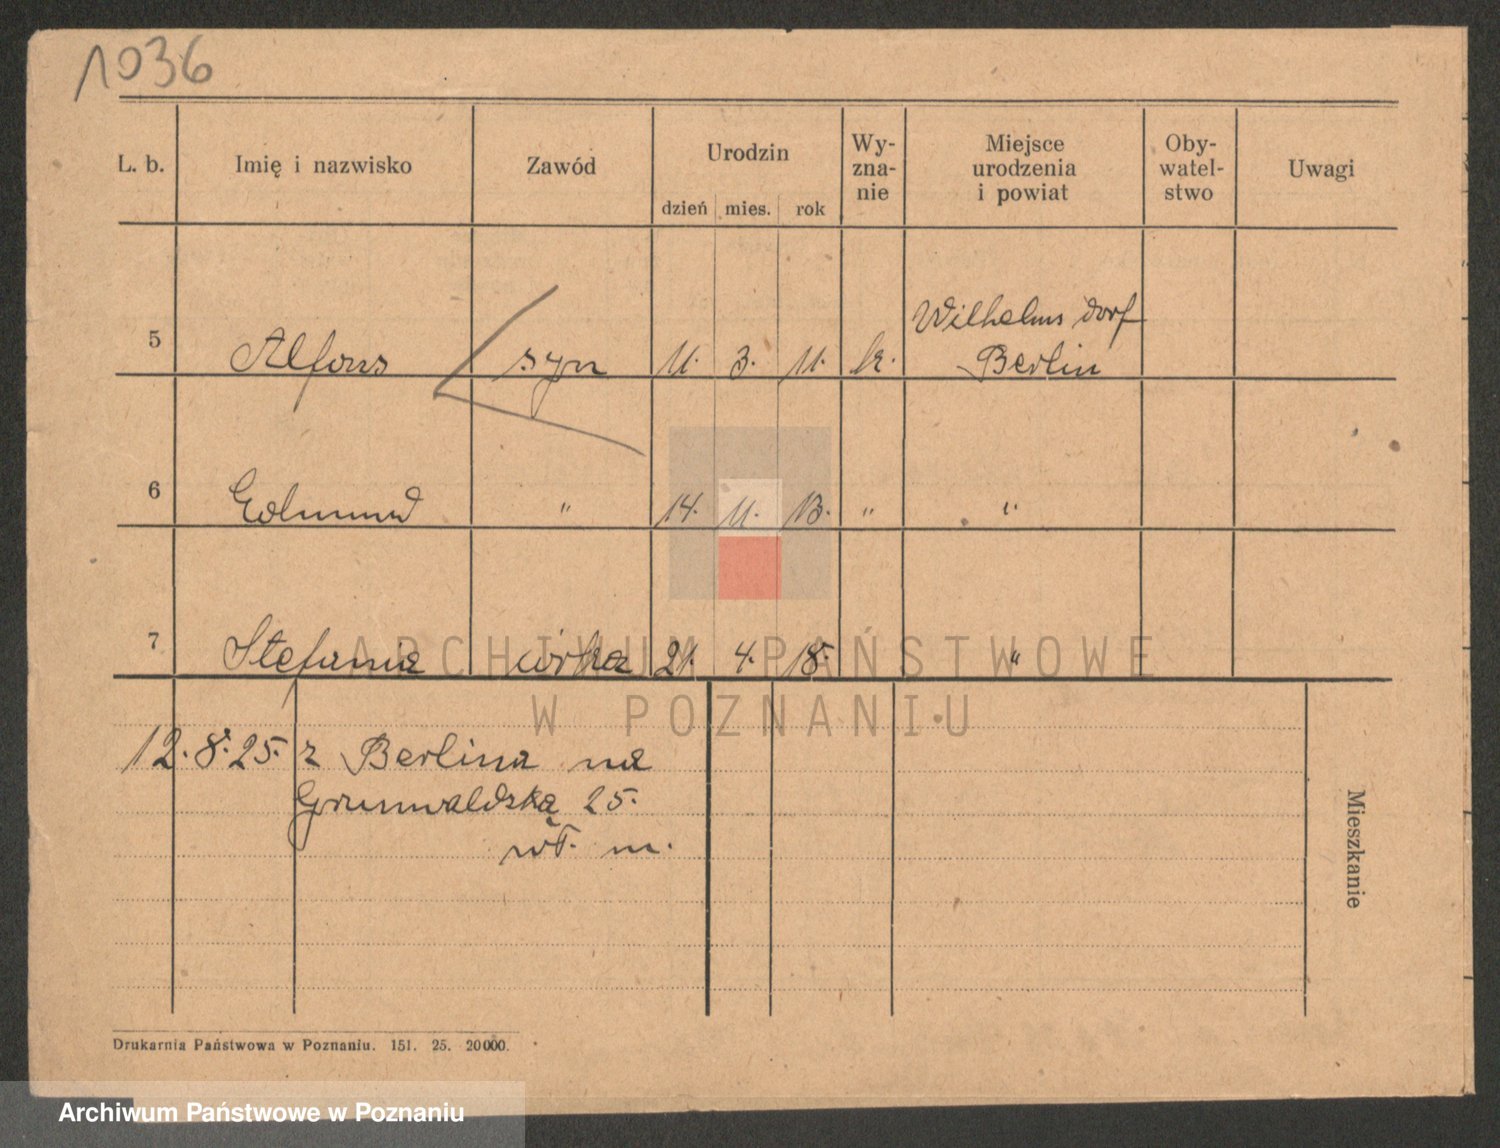 1036
L. b. Imię i nazwisko Zawód Urodzin Wy-zna-nie Miejsce urodzenia i powiat Oby-watel-stwo Uwagi
dzień mies. rok
Wilhelmsdorf
5 Alfons syn 11. 3. 11. k. Berlin
6 Edmund " 14. 11. 13. " "
7 Stefania córka 21. 4. 18. "
ARCHIWUM PAŃSTWOWE
W POZNANIU
12. 8. 25. z Berlina na
Grunwaldską 25.
wł. m.
Mieszkanie
Drukarnia Państwowa w Poznaniu. 151. 25. 20000.
Archiwum Państwowe w Poznaniu